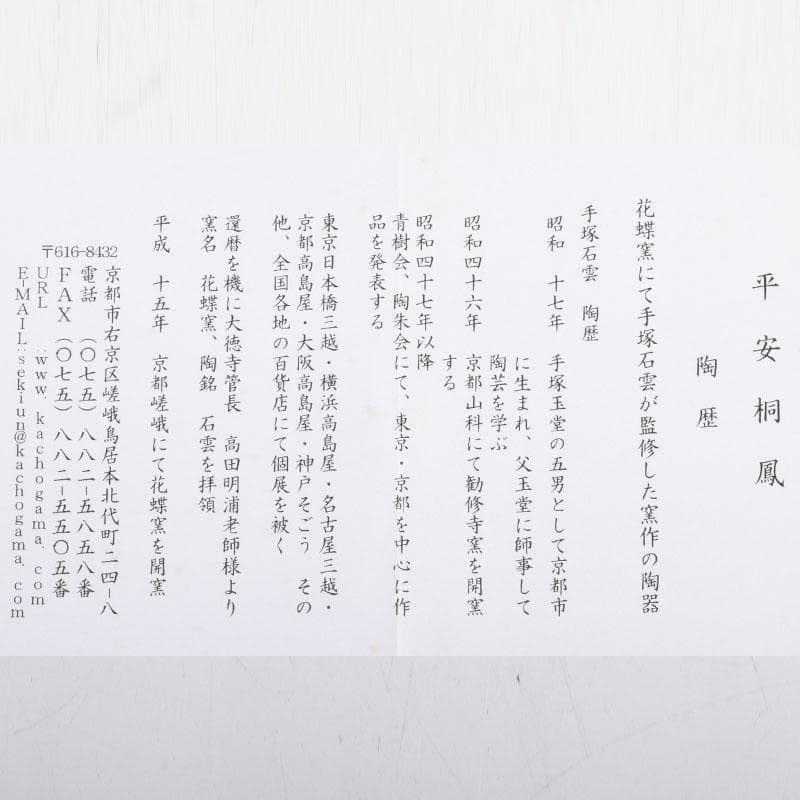 平安桐鳳
陶歴
花蝶窯にて手塚石雲が監修した窯作の陶器
手塚石雲 陶歴
昭和 十七年 手塚玉堂の五男として京都市
に生まれ、父玉堂に師事して
陶芸を学ぶ
昭和四十六年 京都山科にて勧修寺窯を開窯
する
昭和四十七年以降
青樹会、陶朱会にて、東京・京都を中心に作
品を発表する
東京日本橋三越・横浜高島屋・名古屋三越・
京都高島屋・大阪高島屋・神戸そごう その
他、全国各地の百貨店にて個展を被く
還暦を機に大徳寺管長 高田明浦老師様より
窯名 花蝶窯、陶銘 石雲を拝領
平成 十五年 京都嵯峨にて花蝶窯を開窯
〒616-8432
京都市右京区嵯峨鳥居本北代町二四-八
電話 (〇七五)八八二-五八五八番
FAX (〇七五)八八二-五五〇五番
URL :www.kachogama.com
E-MAIL:sekiun@kachogama.com